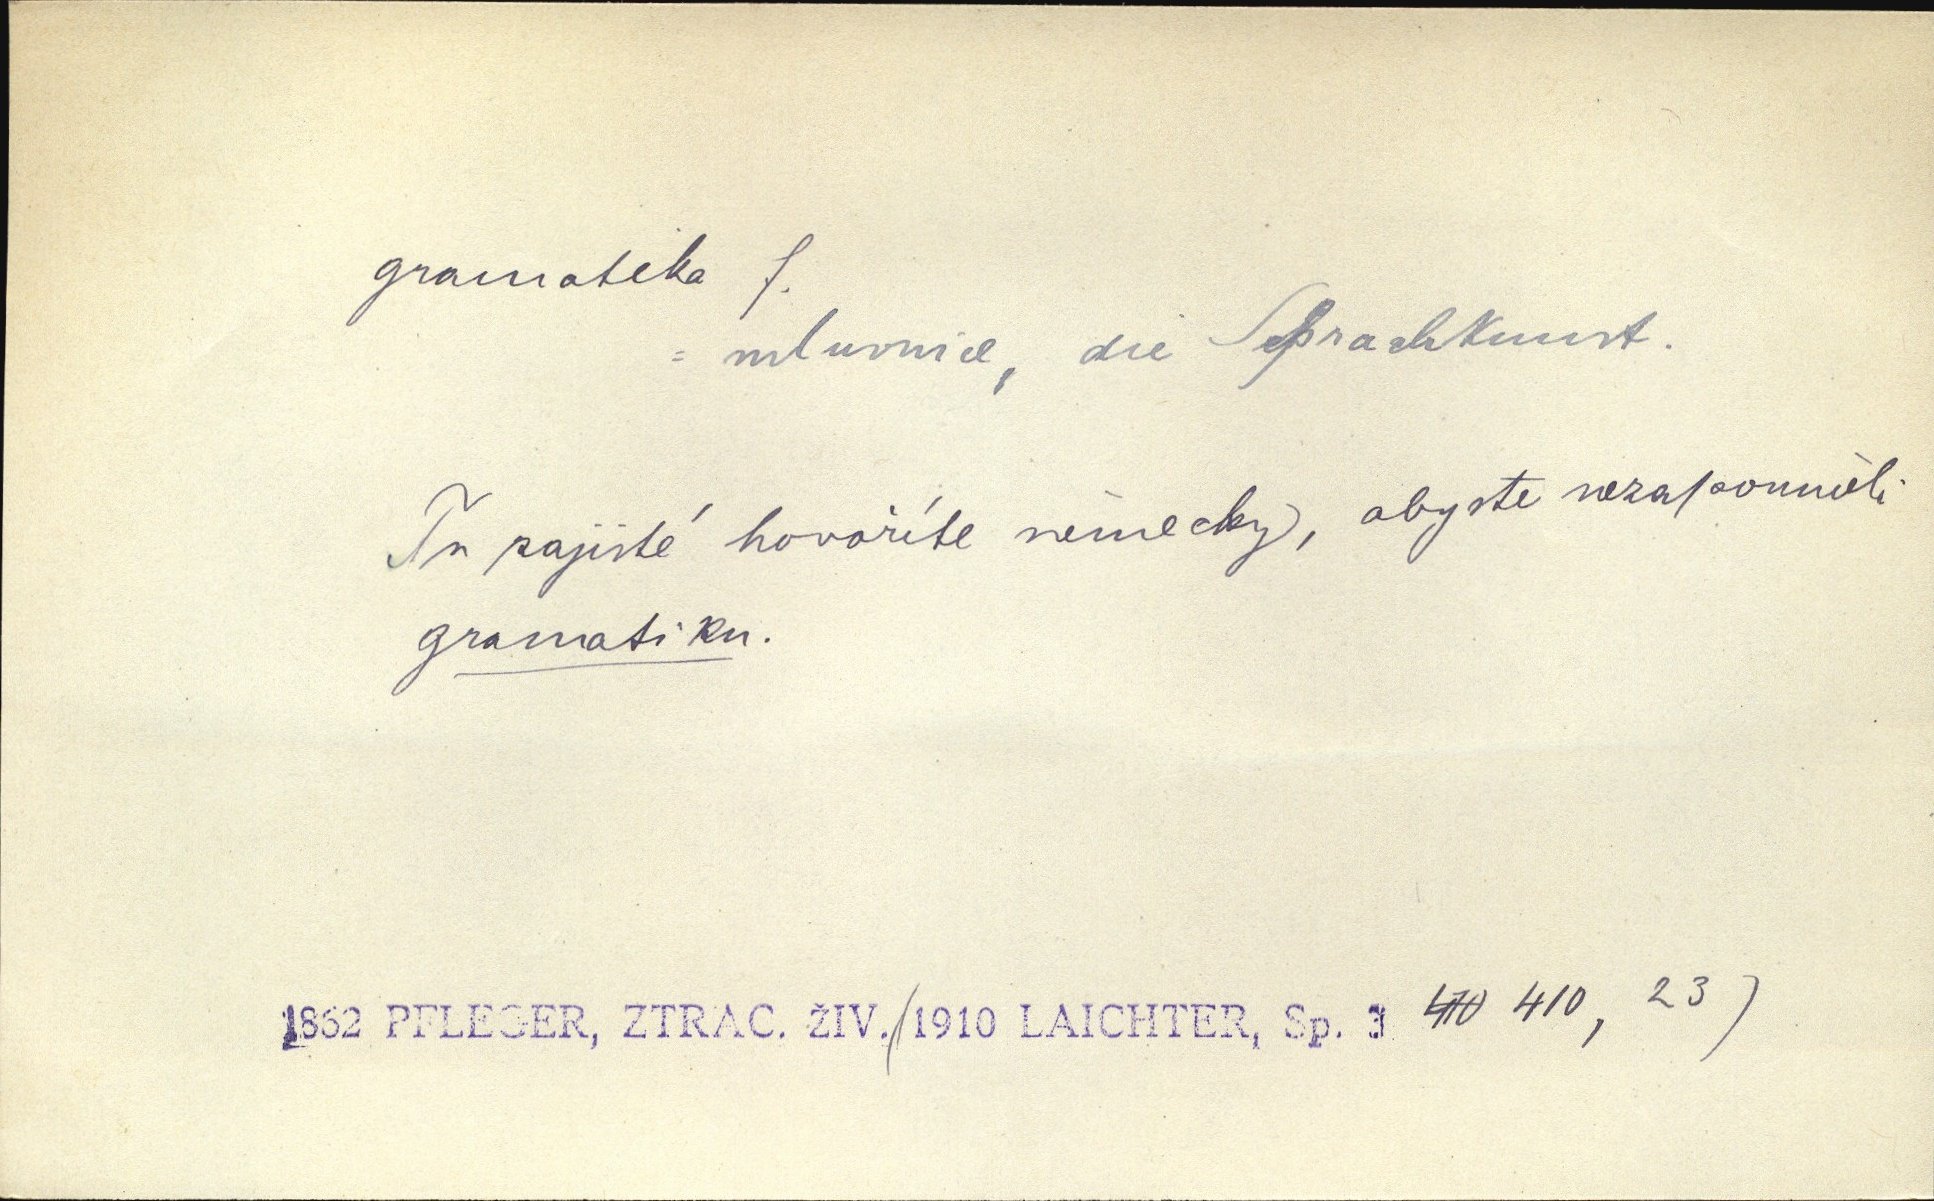 gramatika f.
= mluvnice, die Sprachkunst.
Tu zajisté hovoříte německy, abyste nezapomněli
gramatiku.
1862 PFLEGER, ZTRAC. ŽIV. (1910 LAICHTER, Sp. 3 410, 23)